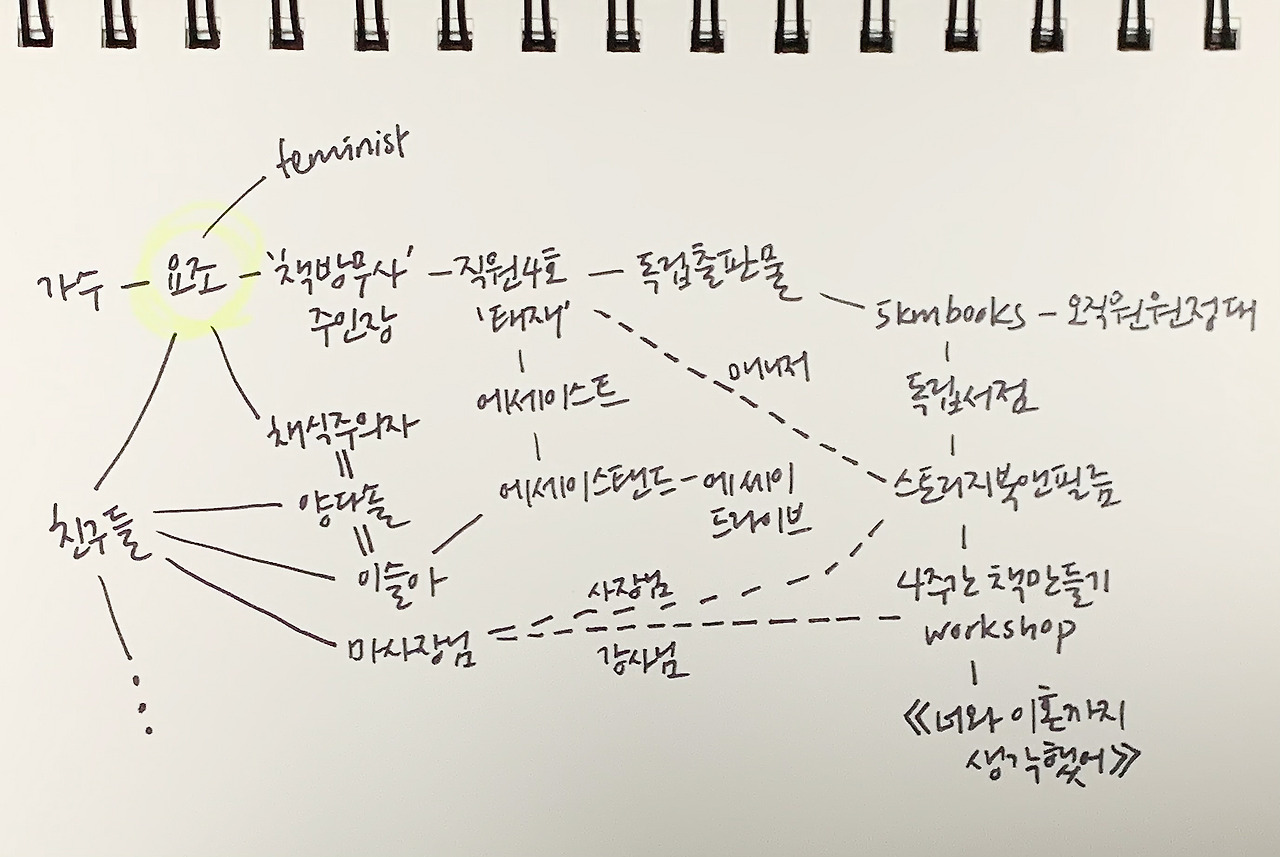 feminist
가수 - 요조 - '책방무사' - 직원4호 - 독립출판물
주인장
'태재'
5kmbooks - 오직원원정대
매니저
에세이스트
독립서점
채식주의자
양다솔
에세이스탠드 - 에세이
드라이브
스토리지북앤필름
친구들
이슬아
사장님
4주간 책만들기
workshop
마사장님
강사님
《너와 이혼까지
생각했어》